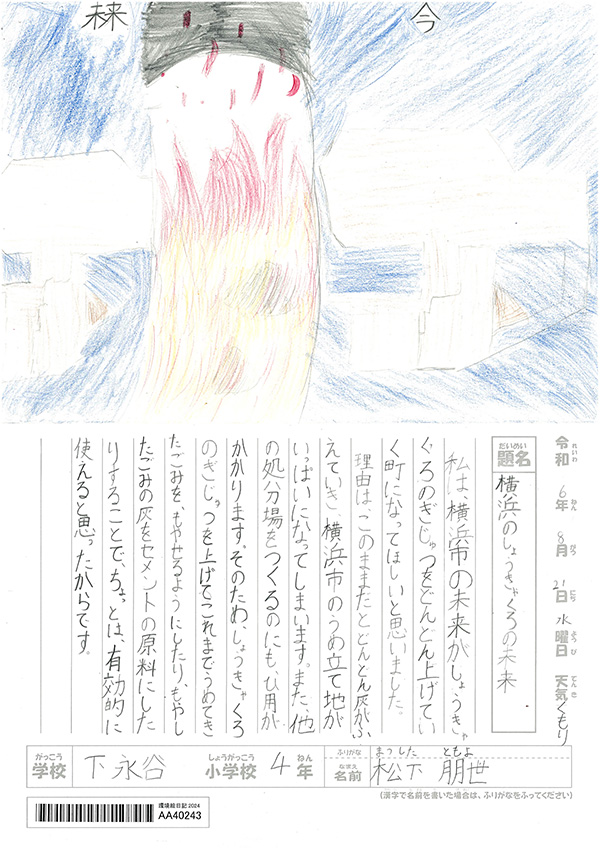 今
未来
令和6年8月21日水曜日 天気くもり
れいわ ねん がつ にち ようび てんき
だいめい
題名
横浜のしょうきゃくろの未来
私は、横浜市の未来がしょうきゃ
くろのぎじゅつをどんどん上げてい
く町になってほしいと思いました。
理由は、このままだとどんどん灰がふ
えていき、横浜市のうめ立て地が
いっぱいになってしまいます。また、他
の処分場をつくるのにも、ひ用が
かかります。そのため、しょうきゃくろ
のぎじゅつを上げてこれまでうめてき
たごみを、もやせるようにしたり、もやし
たごみの灰をセメントの原料にした
りすることで、ちょっとは、有効的に
使えると思ったからです。
がっこう
学校
下永谷
しょうがっこう
小学校
4
ねん
年
ふりがな
まつした ともよ
なまえ
名前
松下 朋世
(漢字で名前を書いた場合は、ふりがなをふってください)
環境絵日記2024
AA40243